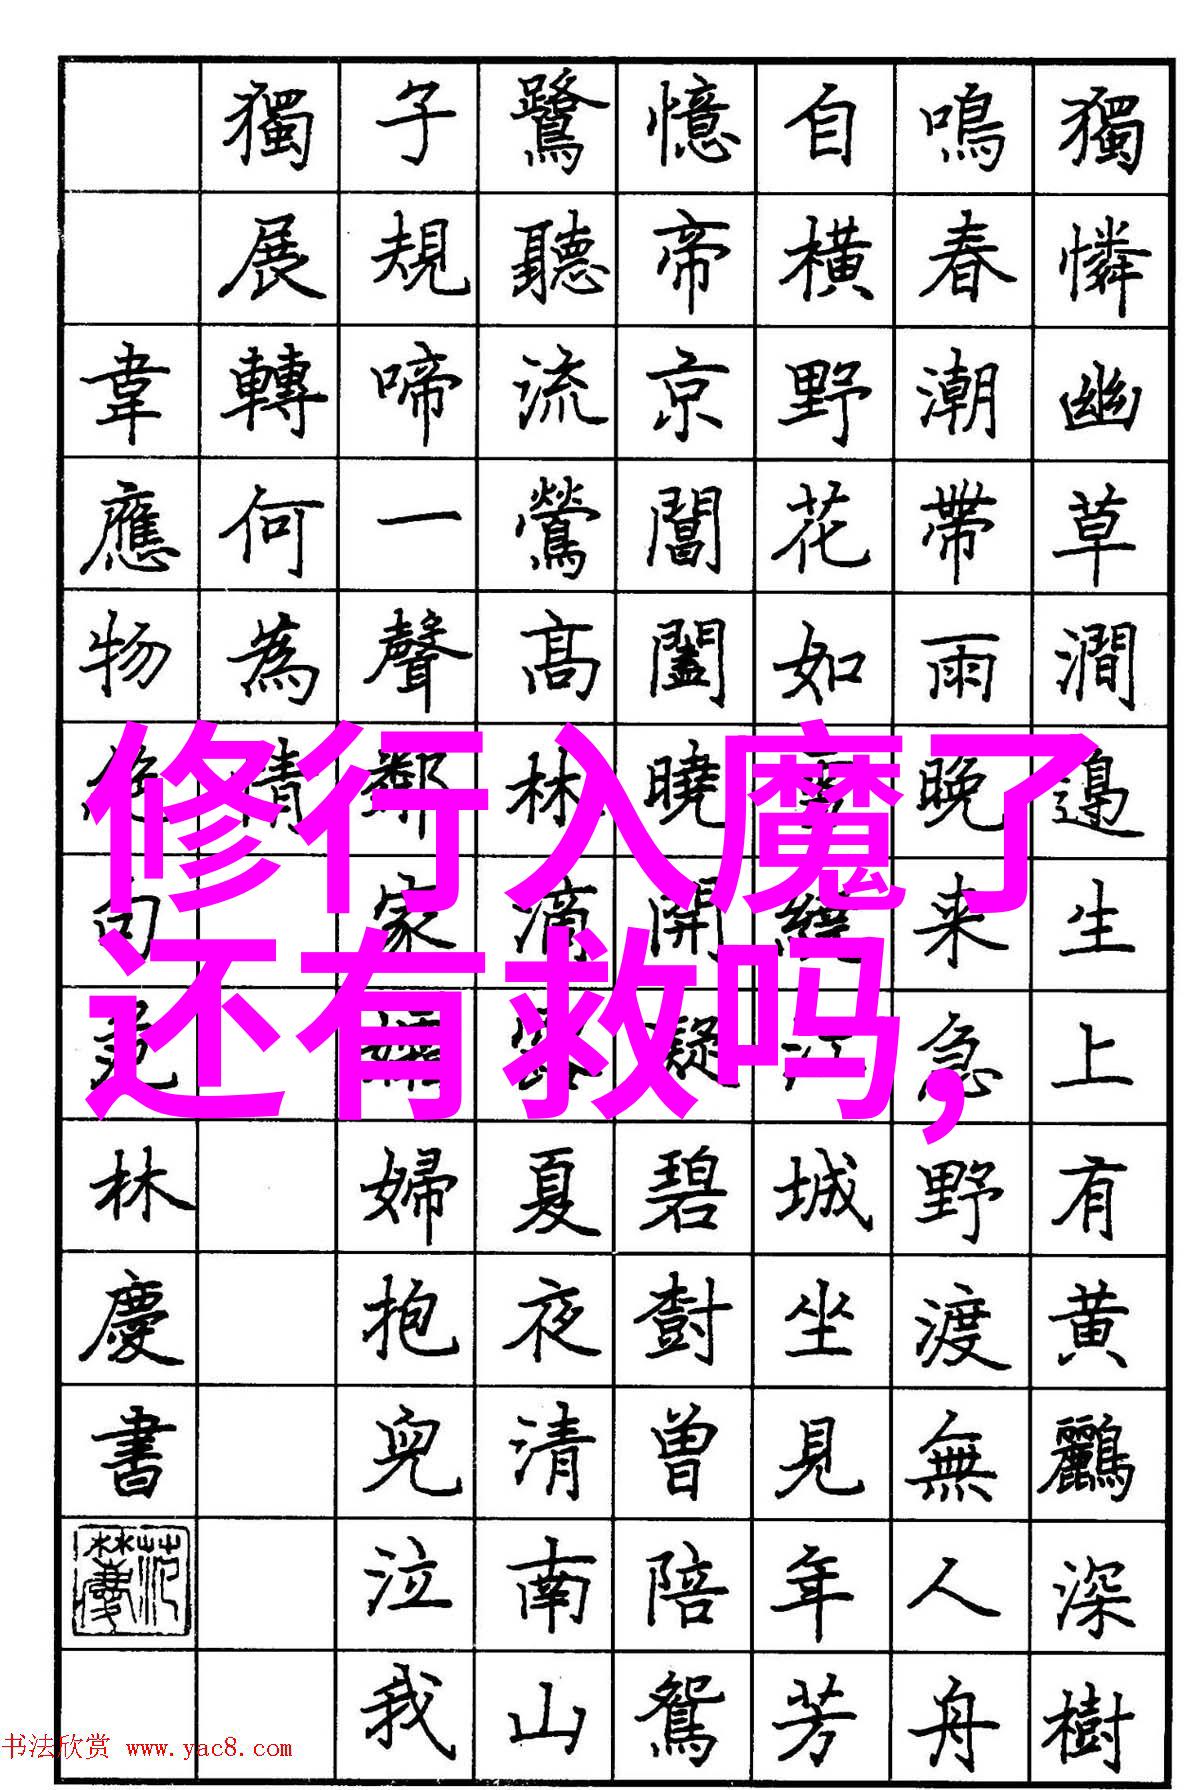 獨憐幽草澗邊生上有黄鸝深樹
鳴春潮帶雨晚来急野渡無人舟
自橫野花如雪繞江城坐見年芳
憶帝京閶闔曉開凝碧樹曾陪鴛
鷺聽流鶯高林滴露夏夜清南山
子規啼一聲鄰家孀婦抱兒泣我
獨展轉何為情
韋應物絶句范林慶書
范林慶
修行入魔了
还有救吗,
书法欣赏 www.yac8.com